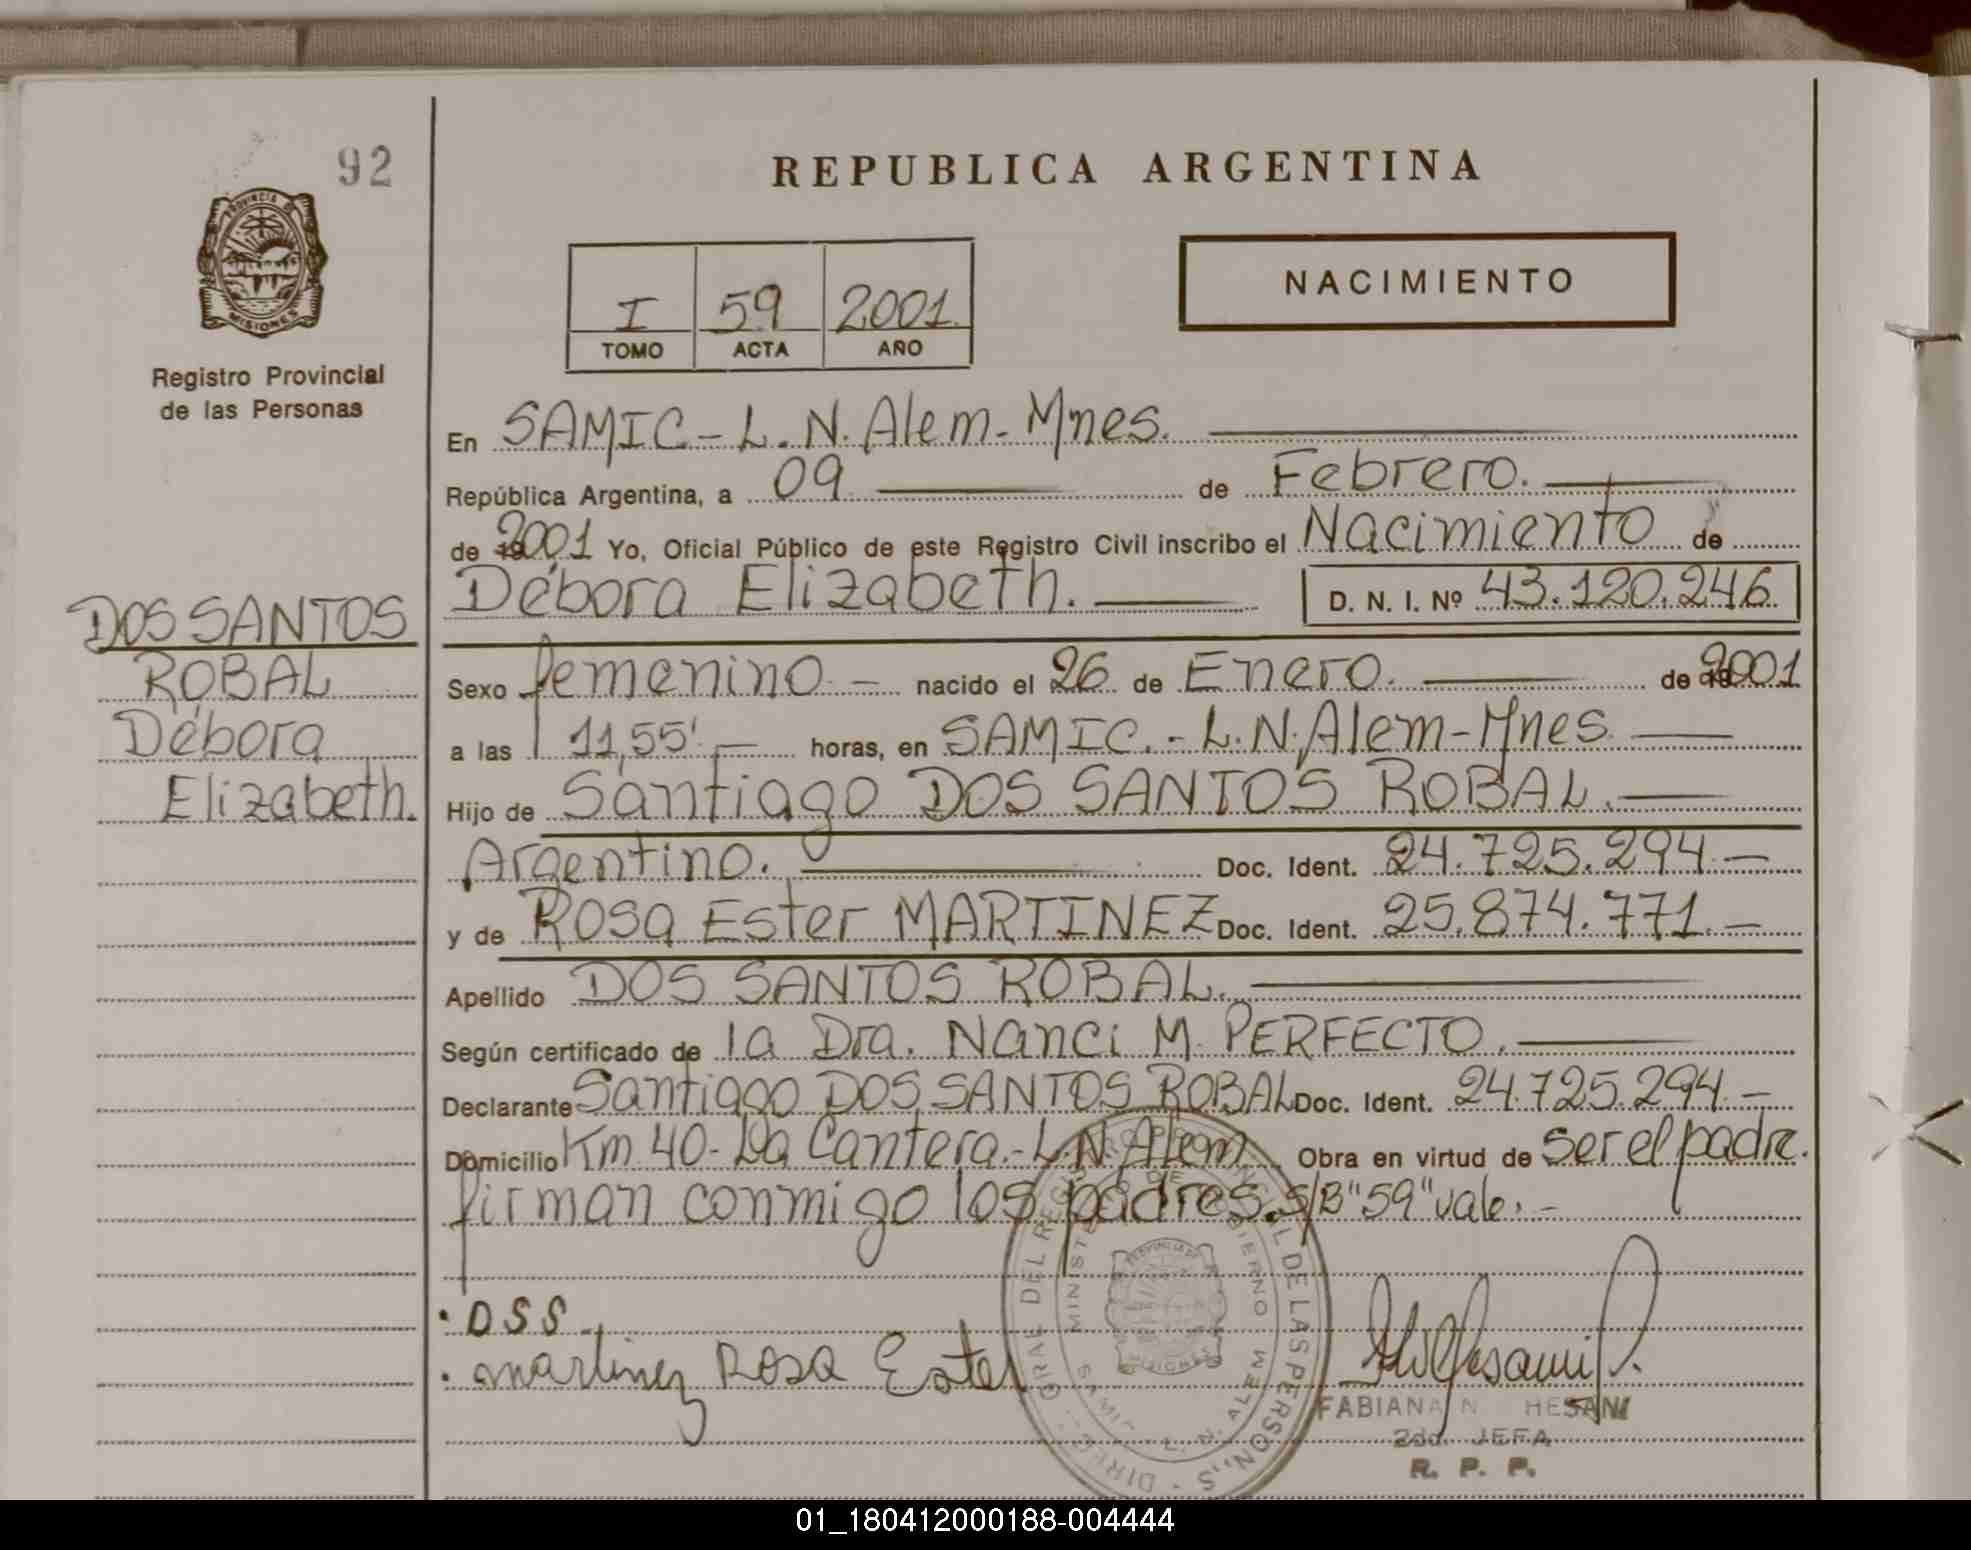 92
REPUBLICA ARGENTINA
PROVINCIA DE
MISIONES
Registro Provincial
de las Personas
I 59 2001
TOMO ACTA AÑO
NACIMIENTO
En SAMIC-L.N.Alem-Mnes.
República Argentina, a 09 de Febrero.
de 2001 Yo, Oficial Público de este Registro Civil inscribo el Nacimiento de
Débora Elizabeth. D. N. I. Nº 43.120.246.
DOS SANTOS
ROBAL
Débora
Elizabeth.
Sexo femenino - nacido el 26 de Enero. de 2001
a las 11,55' horas, en SAMIC.-L.N.Alem-Mnes.
Hijo de Santiago DOS SANTOS ROBAL.
Argentino. Doc. Ident. 24.725.294.-
y de Rosa Ester MARTINEZ Doc. Ident. 25.874.771.-
Apellido DOS SANTOS ROBAL.
Según certificado de la Dra. Nanci M. PERFECTO.
Declarante Santiago DOS SANTOS ROBAL Doc. Ident. 24.725.294.-
Domicilio Km 40-La Cantera.-L.N.Alem Obra en virtud de ser el padre.
firman conmigo los padres. S/B "59" vale.-
. DSS
. Martinez Rosa Ester
FABIANA N HESANI
2da. JEFA
R. P. P.
01_180412000188-004444